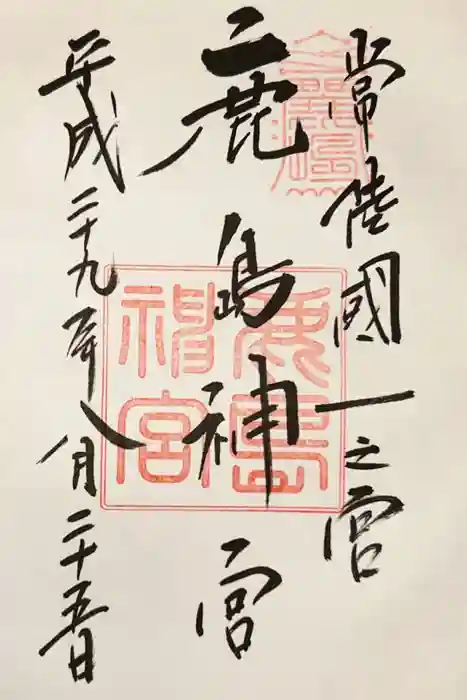 常陸國一之宮
鹿島神宮
平成二十九年八月二十五日
鹿島
神宮